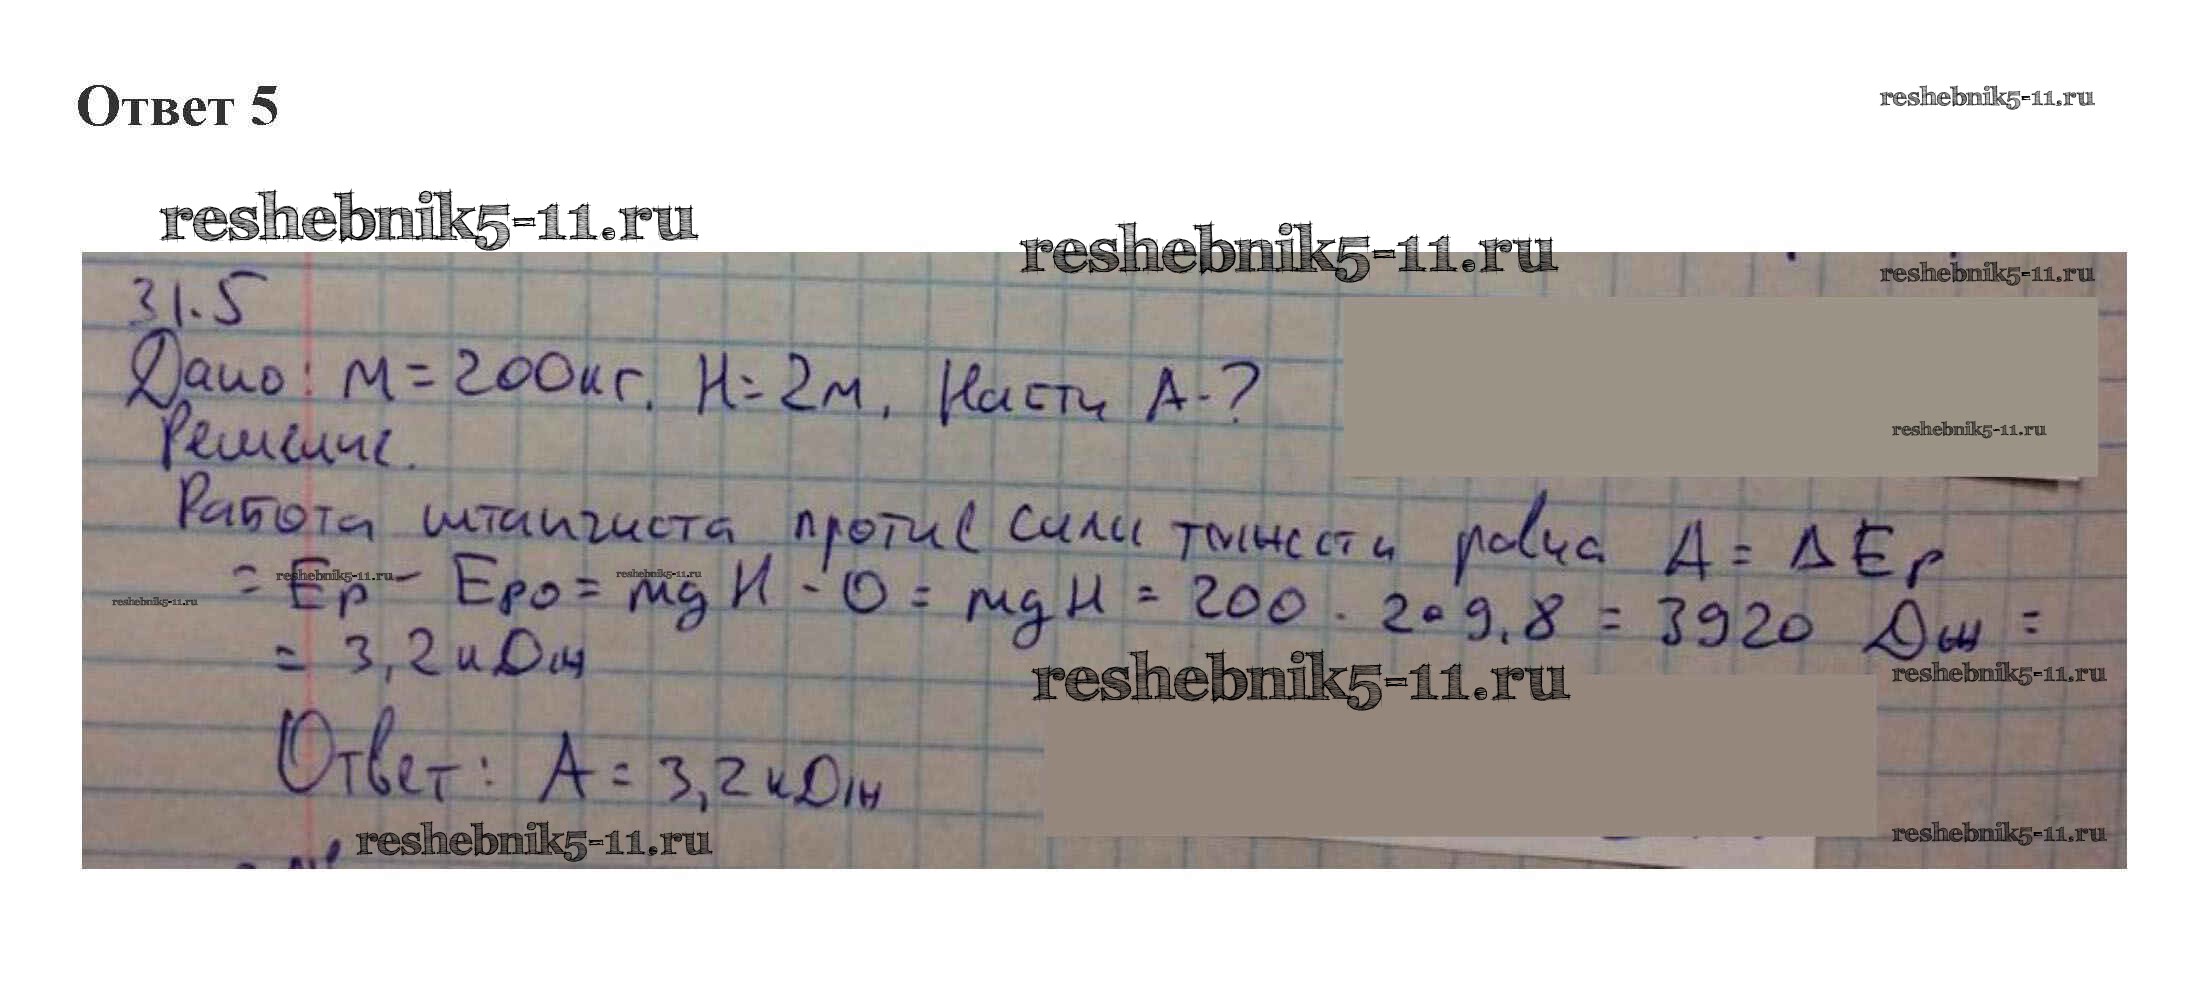 Ответ 5
reshebnik5-11.ru
reshebnik5-11.ru
reshebnik5-11.ru
reshebnik5-11.ru
31.5
Дано: м = 200кг. H = 2м. Насти A - ?
reshebnik5-11.ru
Решение.
Работа штангиста против силы тяжести равна A = Δ Eр
= Eр - Eр0 = mgH - 0 = mgH = 200 · 2 • 9,8 = 3920 Дж =
reshebnik5-11.ru
reshebnik5-11.ru
reshebnik5-11.ru
= 3,2 кДж
reshebnik5-11.ru
reshebnik5-11.ru
Ответ: A = 3,2 кДж
reshebnik5-11.ru
reshebnik5-11.ru